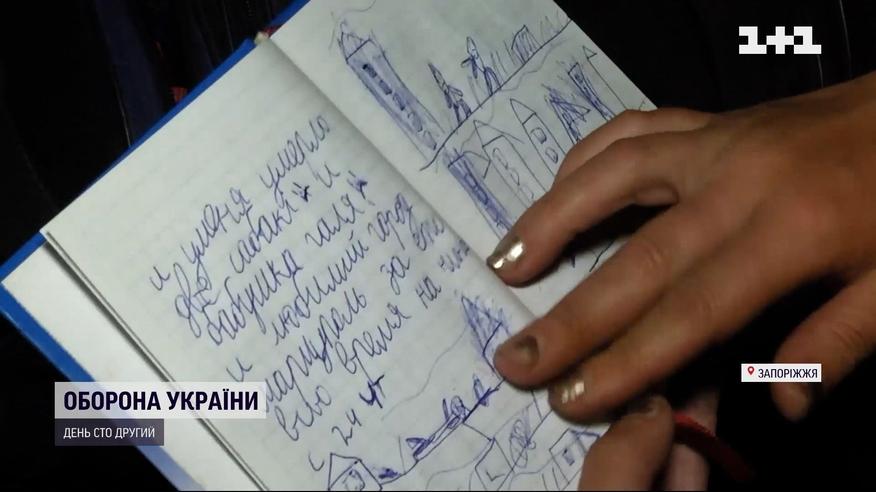 1+1
и уменя умерло
две сабаки и
бабушка галя
и любимий город
мариуполь за это
всьо время на
с 24 чт
ЗАПОРІЖЖЯ
ОБОРОНА УКРАЇНИ
ДЕНЬ СТО ДРУГИЙ